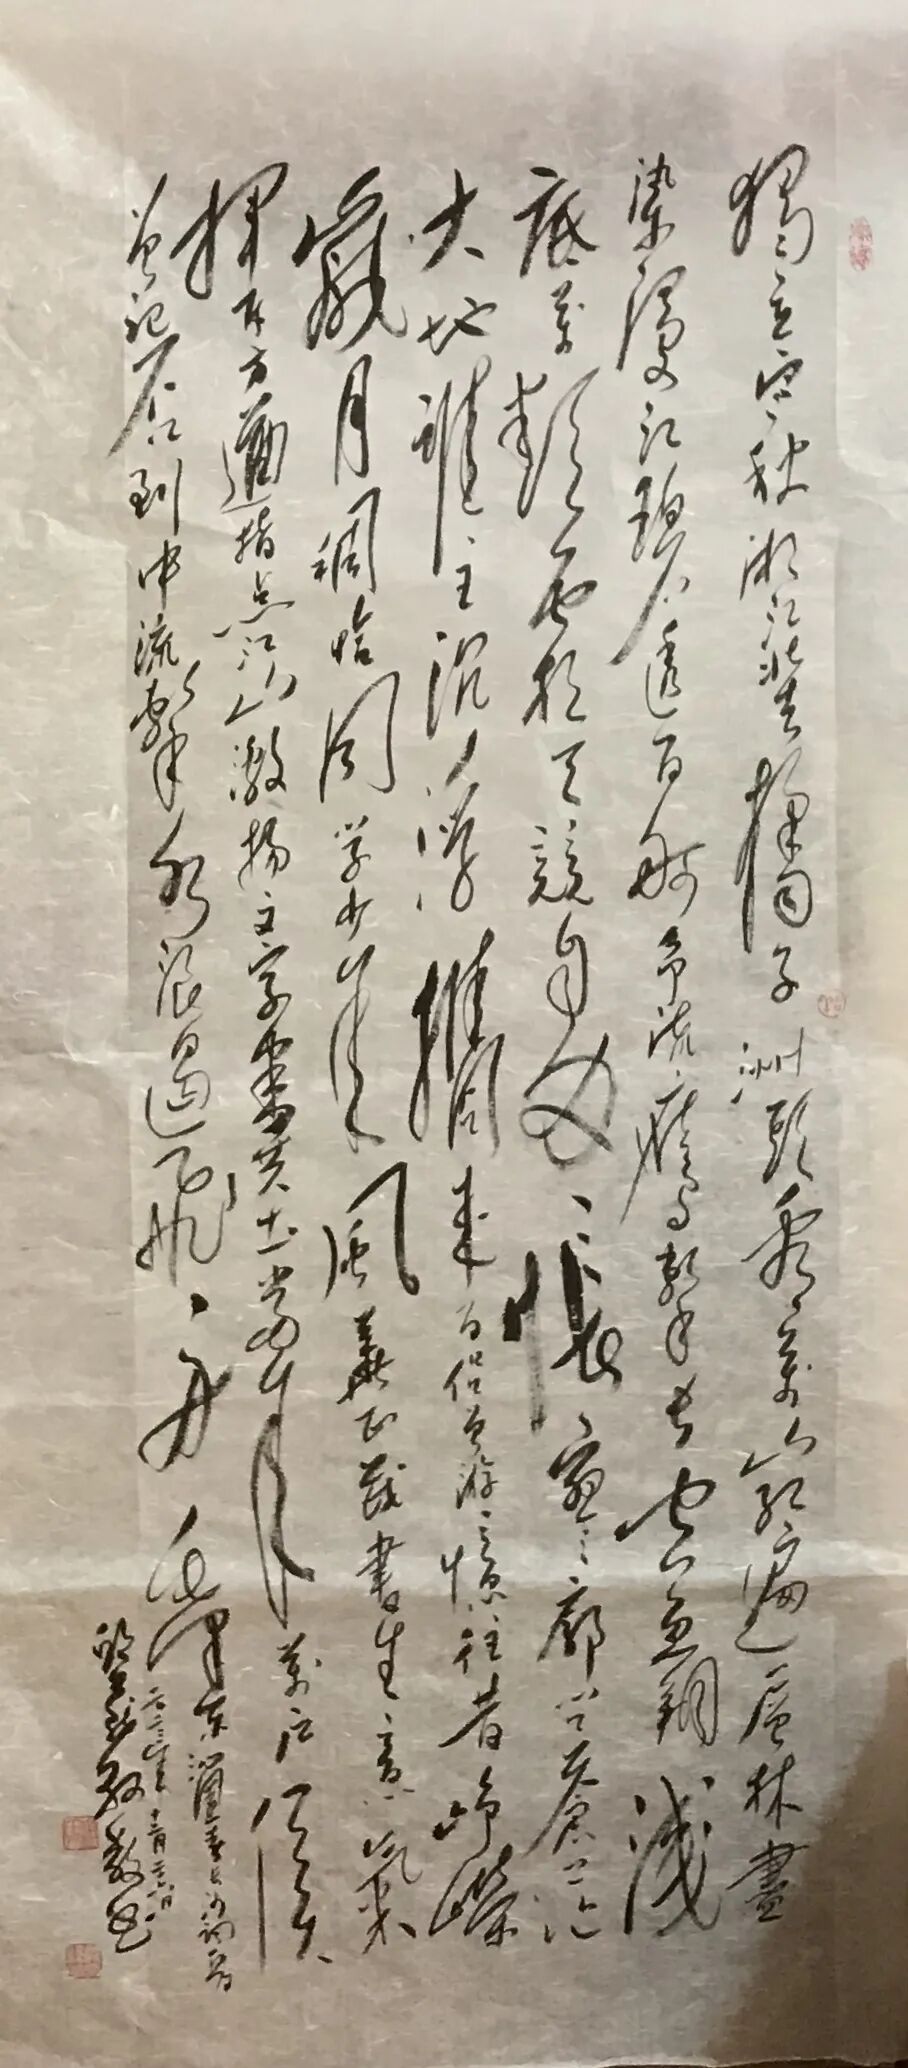 獨立寒秋湘江北去橘子洲頭看萬山紅遍層林盡
染漫江碧透百舸争流鷹擊長空魚翔淺
底萬類霜天競自由悵寥廓問蒼茫
大地誰主沉浮携來百侣曾游憶往昔崢嶸
歲月稠恰同学少年風華正茂書生意氣
揮斥方遒指点江山激揚文字糞土當年萬户侯
曾記否到中流擊水浪遏飛舟毛澤東沁園春長沙詞